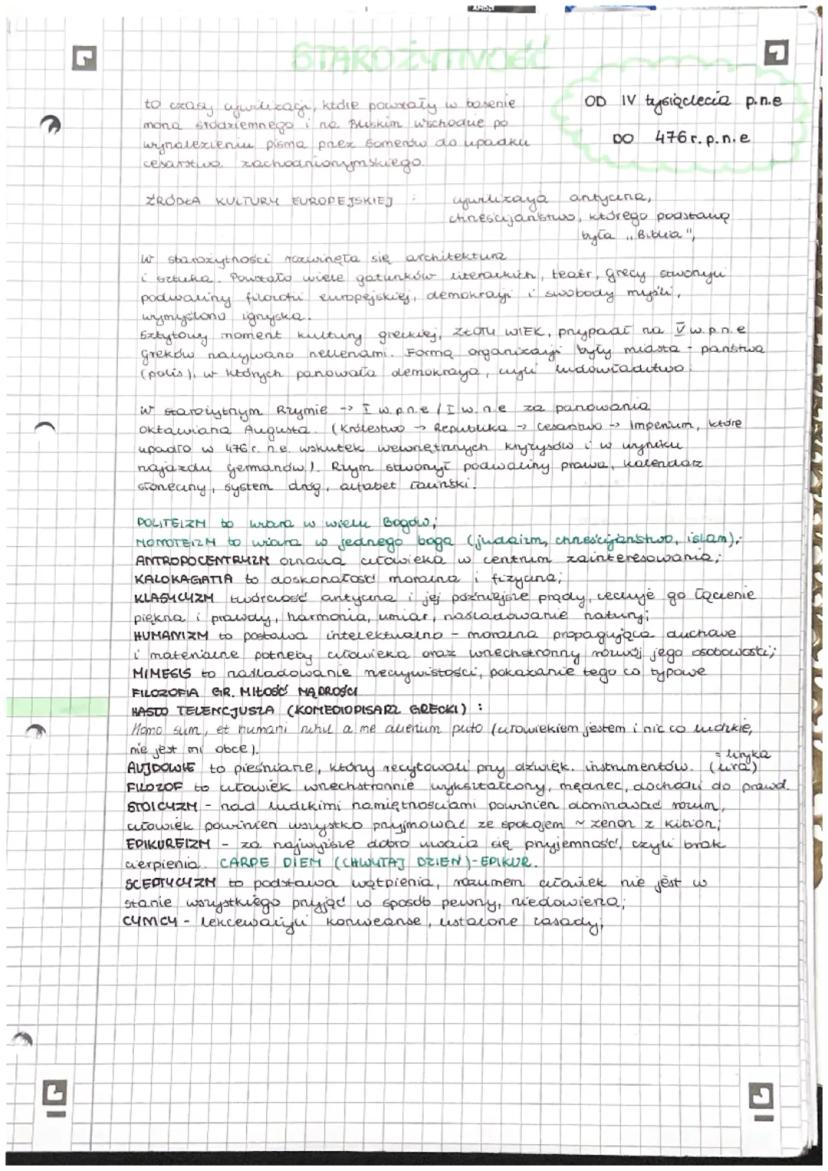 STAROŻYTNOŚĆ
to czasy cywilizacji, które powstały w basenie
morza śródziemnego i na Bliskim Wschodzie po
wynalezieniu pisma przez Sumerów do upadku
cesarstwa zachodniorzymskiego.
OD IV tysiąclecia p.n.e
DO 476 r. p.n.e
ŹRÓDŁA KULTURY EUROPEJSKIEJ : cywilizacja antyczna,
chrześcijaństwo, którego podstawą
była „Biblia",
W starożytności rozwinęła się architektura
i sztuka. Powstało wiele gatunków literackich, teatr, Grecy stworzyli
podwaliny filozofii europejskiej, demokracji i swobody myśli,
wymyślono igrzyska.
Szczytowy moment kultury greckiej, ZŁOTY WIEK, przypadł na V w.p.n.e
Greków nazywano hellenami. Formą organizacji były miasta - państwa
(polis), w których panowała demokracja, czyli ludowładztwo.
W starożytnym Rzymie -> I w.p.n.e / I w. n.e za panowania
Oktawiana Augusta. (Królestwo -> Republika -> Cesarstwo -> Imperium, które
upadło w 476 r. n.e. wskutek wewnętrznych kryzysów i w wyniku
najazdu germanów). Rzym stworzył podwaliny prawa, kalendarz
słoneczny, system dróg, alfabet łaciński.
POLITEIZM to wiara w wielu Bogów;
MONOTEIZM to wiara w jednego boga (judaizm, chrześcijaństwo, islam);
ANTROPOCENTRYZM oznacza człowieka w centrum zainteresowania;
KALOKAGATIA to doskonałość moralna i fizyczna;
KLASYCYZM twórczość antyczna i jej późniejsze prądy, cechuje go łączenie
piękna i prawdy, harmonia, umiar, naśladowanie natury;
HUMANIZM to postawa intelektualno - moralna propagująca duchowe
i materialne potrzeby człowieka oraz wszechstronny rozwój jego osobowości;
MIMESIS to naśladowanie rzeczywistości, pokazanie tego co typowe
FILOZOFIA GR. MIŁOŚĆ MĄDROŚCI
HASŁO TELENCJUSZA (KOMEDIOPISARZ GRECKI) :
Homo sum, et humani nihil a me alienum puto (człowiekiem jestem i nic co ludzkie,
nie jest mi obce).
AUJDOWIE to pieśniarze, który recytowali przy dźwięk. instrumentów. (lira) = liryka
FILOZOF to człowiek wszechstronnie wykształcony, mędrzec, dochodzi do prawd.
STOICYZM - nad ludzkimi namiętnościami powinien dominować rozum,
człowiek powinien wszystko przyjmować ze spokojem ~ zenon z kition;
EPIKUREIZM - za najwyższe dobro uważa się przyjemność, czyli brak
cierpienia. CARPE DIEM (CHWYTAJ DZIEŃ) - EPIKUR.
SCEPTYCYZM to podstawa wątpienia, rozumem człowiek nie jest w
stanie wszystkiego przyjąć w sposób pewny, niedowierza;
CYNICY - lekceważyli konwenanse, ustalone zasady;